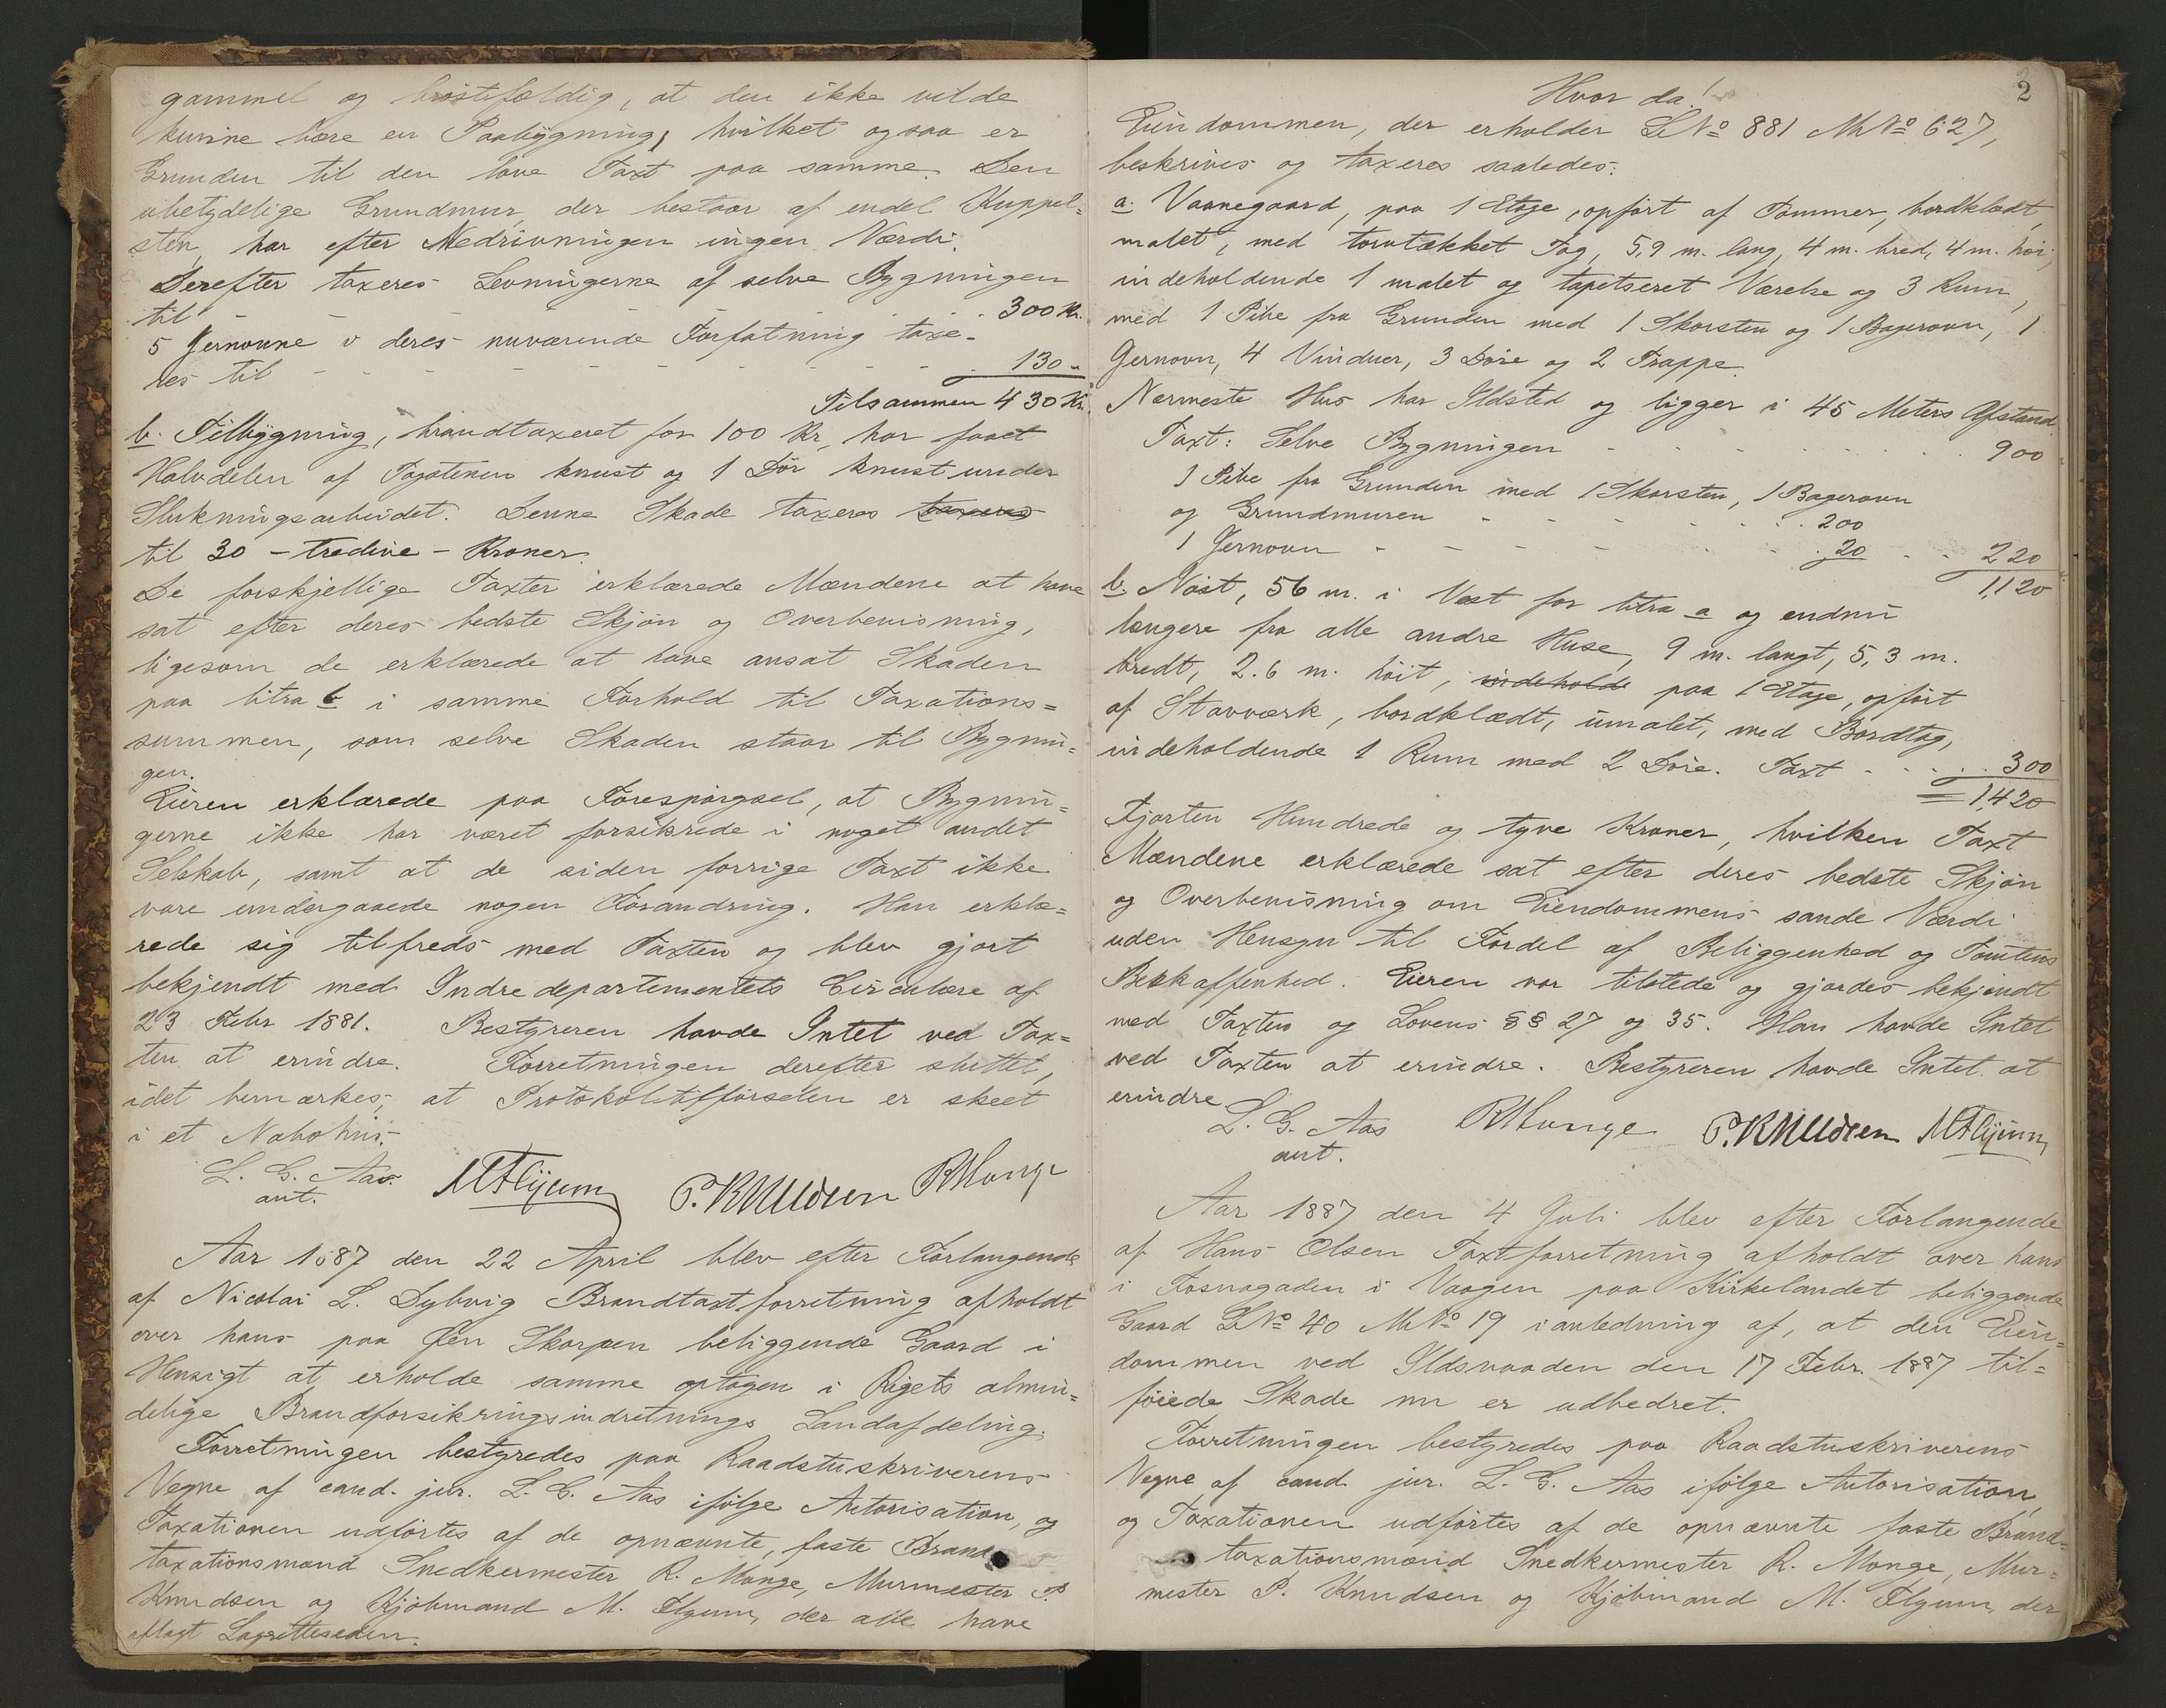 gammel og brøstfældig, at den ikke vilde
kunne bære en Paabygning, hvilket ogsaa er
Grunden til den lave Taxt paa samme. Den
ubetydelige Grundmur, der bestaar af endel Kuppel=
sten, har efter Nedrivningen ingen Værdi.
Derefter taxeres Levningerne af selve Bygningen
til - - - - 300 Kr.
5 Jernovne i deres nuværende Forfatning taxe-
res til - - - - - - - - - 130 "
Tilsammen 430 Kr.
b. Tilbygning, brandtaxeret for 100 Kr, har faaet
Halvdelen af Tagstenen knust og 1 Dør knust under
Slukningsarbeidet. Denne Skade taxeres taxeres
til 30 - tredive - Kroner.
De forskjellige Taxter erklærede Mændene at have
sat efter deres bedste Skjøn og Overbevisning,
ligesom de erklærede at have ansat Skaden
paa litra b i samme Forhold til Taxations=
summen, som selve Skaden staar til Bygnin=
gen.
Eieren erklærede paa Forespørgsel, at Bygnin=
gerne ikke har været forsikrede i noget andet
Selskab, samt at de siden forrige Taxt ikke
vare undergaaede nogen Forandring. Han erklæ=
rede sig tilfreds med Taxten og blev gjort
bekjendt med Indredepartementets Circulære af
23 Febr 1881. Bestyreren havde Intet ved Tax=
ten at erindre. Forretningen derefter sluttet,
idet bemærkes, at Protokoltilførselen er skeet
i et Nabohus.
L. G. Aas. MFlyum P. Knudsen RMonge
aut.
Aar 1887 den 22 April blev efter Forlangende
af Nicolai L. Dybvig Brandtaxtforretning afholdt
over hans paa Øen Skorpen beliggende Gaard i
Hensigt at erholde samme optagen i Rigets almin=
delige Brandforsikringsindretnings Landafdeling.
Forretningen bestyredes paa Raadstuskriverens
Vegne af cand. jur. L. G. Aas ifølge Autorisation, og
Taxationen udførtes af de opnævnte, faste Brand
taxationsmænd Snedkermester R. Monge, Murmester P.
Knudsen og Kjøbmand M. Flyum, der alle have
aflagt Lagretteseden.
2
Hvor da!
Eiendommen, der erholder LNo 881 MNo 627,
beskrives og taxeres saaledes:
a. Vaanegaard, paa 1 Etage, opført af Tømmer, bordklædt,
malet, med torvtækket Tag, 5,9 m. lang, 4 m. bred, 4 m. høi,
indeholdende 1 malet og tapetseret Værelse og 3 Rum,
med 1 Pibe fra Grunden med 1 Skorsten og 1 Bagerovn, 1
Jernovn, 4 Vinduer, 3 Døre og 2 Trappe.
Nærmeste Hus har Ildsted og ligger i 45 Meters Afstand.
Taxt: Selve Bygningen - - - - - 900
1 Pibe fra Grunden med 1 Skorsten, 1 Bagerovn
og Grundmuren - - - - - 200
1 Jernovn - - - - - 20 - - 220
1,120
b. Nøst, 56 m. i Vest for litra a og endnu
længere fra alle andre Huse, 9 m. langt, 5,3 m.
bredt, 2.6 m. høit, indeholde paa 1 Etage, opført
af Stavværk, bordklædt, umalet, med Bordtag,
indeholdende 1 Rum med 2 Døre. Taxt - - - 300
= 1,420
Fjorten Hundrede og tyve Kroner, hvilken Taxt
Mændene erklærede sat efter deres bedste Skjøn
og Overbevisning om Eiendommens sande Værdi
uden Hensyn til Fordel af Beliggenhed og Tomtens
Beskaffenhed. Eieren var tilstede og gjordes bekjendt
med Taxten og Lovens §§ 27 og 35. Han havde Intet
ved Taxten at erindre. Bestyreren havde Intet at
erindre
L. G. Aas RMonge P. Knudsen MFlyum
aut.
Aar 1887 den 4 Juli blev efter Forlangende
af Hans Olsen Taxtforretning afholdt over hans
i Fosnagaden i Vaagen paa Kirkelandet beliggende
Gaard LNo 40 MNo 19 i anledning af, at den Eien=
dommen ved Ildsvaaden den 17 Febr. 1887 til=
føiede Skade nu er udbedret.
Forretningen bestyredes paa Raadstuskriverens
Vegne af cand. jur. L. G. Aas ifølge Autorisation,
og Taxationen udførtes af de opnævnte faste Brand=
taxationsmænd Snedkermester R. Monge, Mur=
mester P. Knudsen og Kjøbmand M. Flyum, der